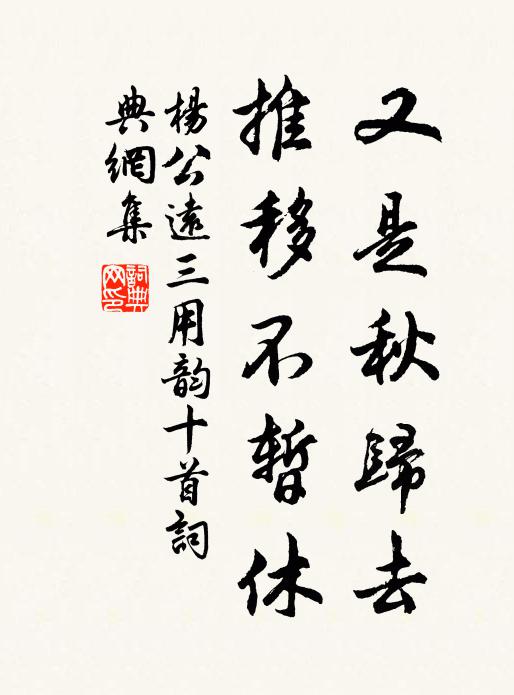 又是秋歸去
推移不暫休
楊公遠三用韵十首詞
典網集
詞典網印